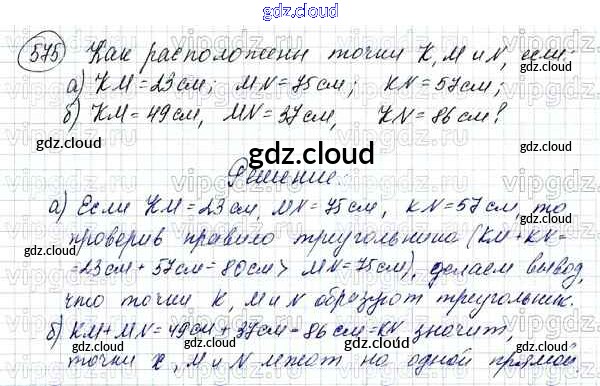 gdz.cloud
575 Как расположены точки K, M и N, если:
а) KM = 23 см; MN = 75 см; KN = 57 см;
б) KM = 49 см, MN = 37 см, KN = 86 см?
gdz.cloud
Решение:
а) Если KM = 23 см, MN = 75 см, KN = 57 см, то
проверив правило треугольника (KM + KN =
= 23 см + 57 см = 80 см > MN = 75 см), делаем вывод,
что точки K, M и N образуют треугольник.
б) KM + MN = 49 см + 37 см = 86 см = KN значит,
точки K, M и N лежат на одной прямой